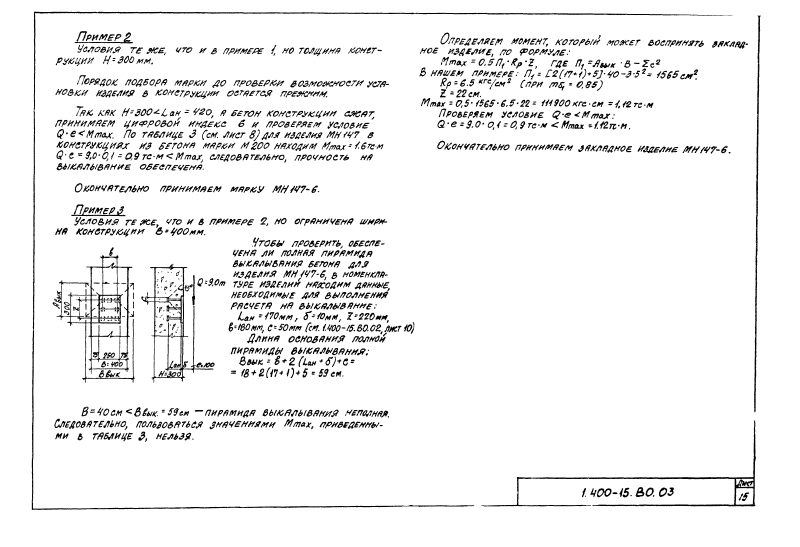 Пример 2
Условия те же, что и в примере 1, но толщина конст-
рукции H=300 мм.
Порядок подбора марки до проверки возможности уста-
новки изделия в конструкции остается прежним.
Так как H=300<Lан=420, а бетон конструкции сжат,
принимаем цифровой индекс 6 и проверяем условие
Q·e<Mmax. По таблице 3 (см. лист 8) для изделия МН 147 в
конструкциях из бетона марки М200 находим Mmax=1.6тсм
Q·e=9,0·0,1=0,9 тс·м<Mmax, следовательно, прочность на
выкалывание обеспечена.
Окончательно принимаем марку МН 147-6.
Пример 3
Условия те же, что и в примере 2, но ограничена шири-
на конструкции B=400мм.
Чтобы проверить, обеспе-
чена ли полная пирамида
выкалывания бетона для
изделия МН 147-6, в номенкла-
туре изделий находим данные,
необходимые для выполнения
расчета на выкалывание:
Lан=170мм, δ=10мм, Z=220мм,
в=180мм, c=50мм (см. 1.400-15.В0.02, лист 10)
Длина основания полной
пирамиды выкалывания:
Bвык=в+2(Lан+δ)+c=
=18+2(17+1)+5=59 см.
в
Bвык
300
Z
75 250 75
B=400
Bвык
45°
Q=9,0т
Lан δ e=100
H=300
B=40см<Bвык.=59см — пирамида выкалывания неполная.
Следовательно, пользоваться значениями Mmax, приведенны-
ми в таблице 3, нельзя.
Определяем момент, который может воспринять заклад-
ное изделие, по формуле:
Mmax=0.5П₁·Rp·Z, где П₁=Aвык·B-Σc²
В нашем примере: П₁=[2(17+1)+5]·40-3·5²=1565 см².
Rp=6.5 кгс/см² (при mδ₁=0,85)
Z=22см.
Mmax=0,5·1565·6.5·22=111900 кгс·см=1,12 тс·м
Проверяем условие Q·e<Mmax:
Q·e=9.0·0,1=0,9 тс·м<Mmax=1.12тс·м.
Окончательно принимаем закладное изделие МН 147-6.
1.400-15.В0.03
Лист
15